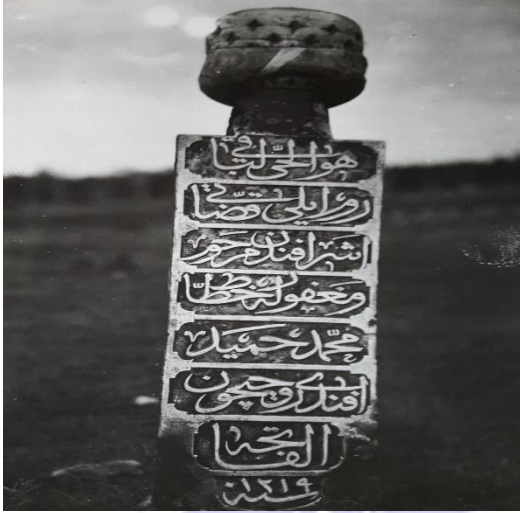 هو الحي الباقي
روم ايلي قضاتي
اشرافندن مرحوم
ومغفور له خطاط
محمد حميد
افندي روحيچون
الفاتحه
سنه ١٢١٩